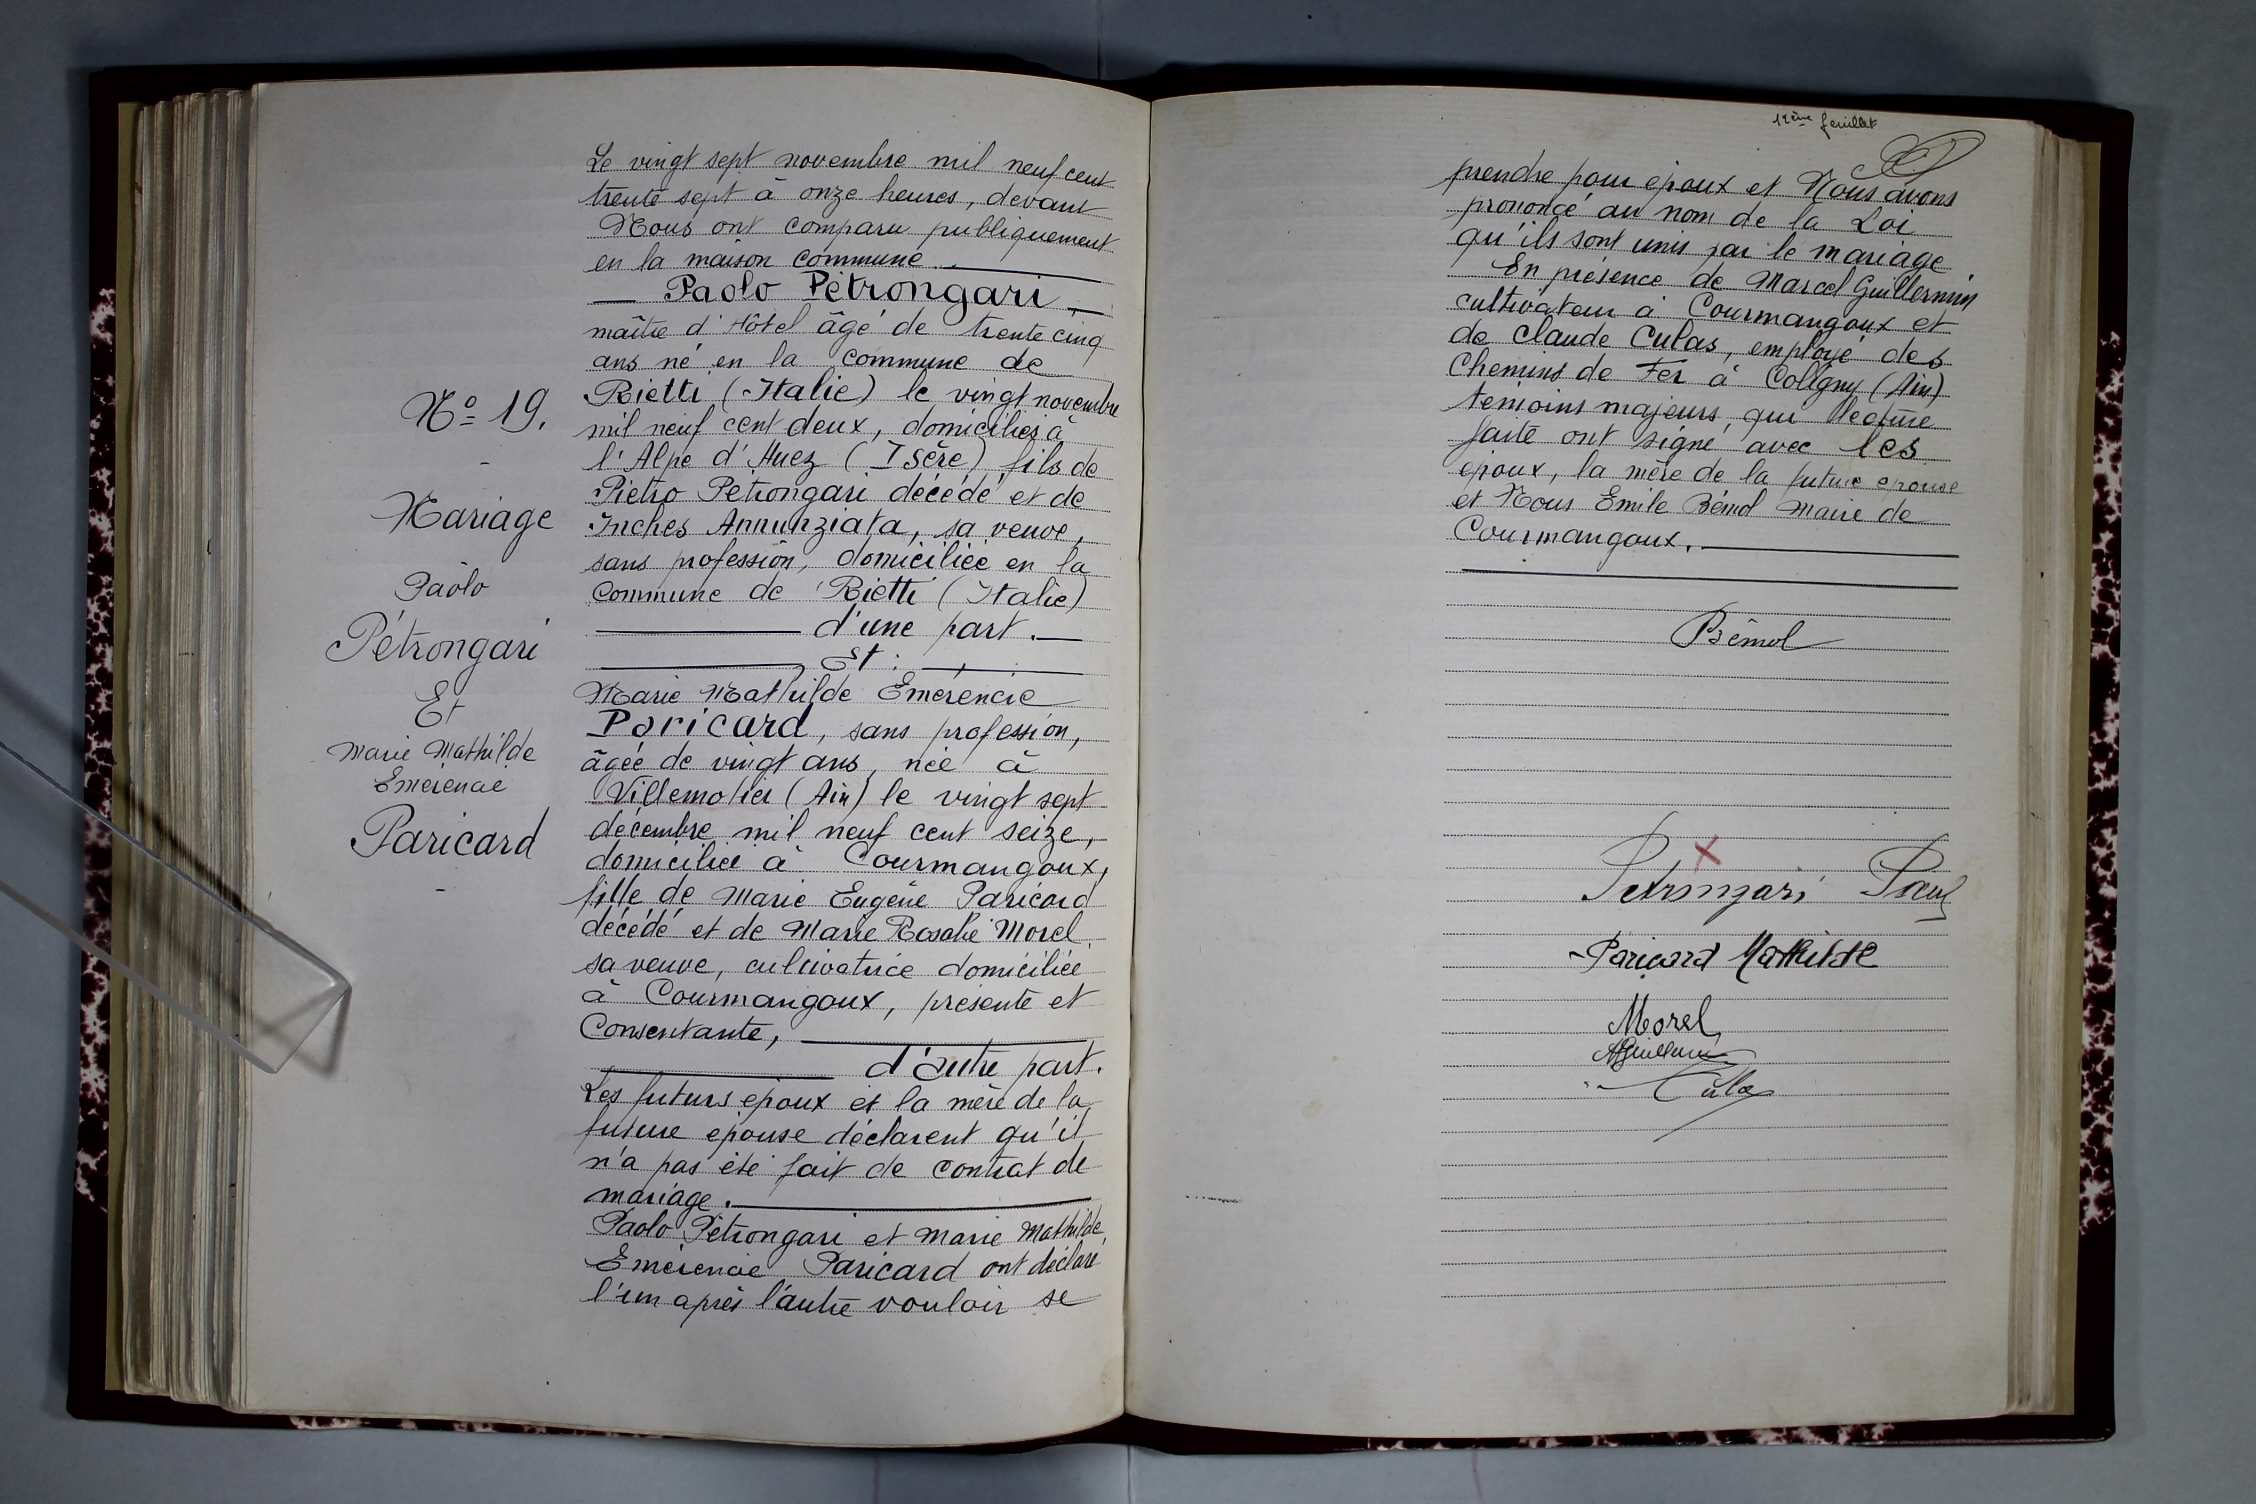 N° 19.
Mariage
Paolo
Pétrongari
Et
Marie Mathilde
Emérencie
Paricard
Le vingt sept novembre mil neuf cent
trente sept à onze heures, devant
Nous ont comparu publiquement
en la maison commune
Paolo Pétrongari
maître d'Hôtel âgé de trente cinq
ans né en la commune de
Rietti (Italie) le vingt novembre
mil neuf cent deux, domiciliés à
l'Alpe d'Huez (Isère) fils de
Piétro Petrongari décédé et de
Inches Annunziata, sa veuve,
sans profession, domiciliée en la
commune de Rietti (Italie)
d'une part.
Et :
Marie Mathilde Emérencie
Paricard, sans profession,
âgée de vingt ans, née à
Villemotier (Ain) le vingt sept
décembre mil neuf cent seize,
domiciliée à Courmangoux,
fille de Marie Eugène Paricard
décédé et de Marie Rosalie Morel
sa veuve, cultivatrice domiciliée
à Courmangoux, présente et
Consentante,
d'autre part.
Les futurs époux et la mère de la
future épouse déclarent qu'il
n'a pas été fait de contrat de
mariage.
Paolo Pétrongari et Marie Mathilde
Emérencie Paricard ont déclaré
l'un après l'autre vouloir se
12ème feuillet
prendre pour époux et Nous avons
prononcé au nom de la Loi
qu'ils sont unis par le mariage
En présence de Marcel Guillermin
cultivateur à Courmangoux et
de Claude Culas, employé des
Chemins de Fer à Coligny (Ain)
témoins majeurs, qui lecture
faite ont signé avec les
époux, la mère de la future épouse
et Nous Emile Bémol Maire de
Courmangoux.
Bémol
Petrongari Paul
Paricard Mathilde
Morel
MGuillermin
Culas